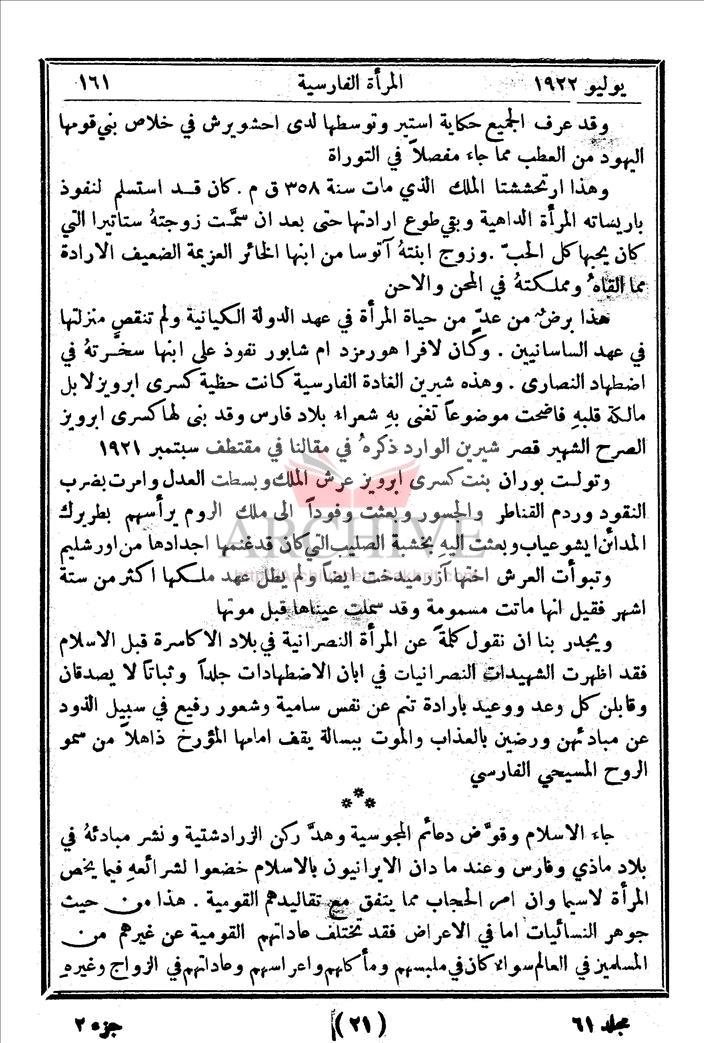 يوليو ١٩٢٢ المرأة الفارسية ١٦١
وقد عرف الجميع حكاية استير وتوسطها لدى احشويرش في خلاص بني قومها
اليهود من العطب مما جاء مفصلاً في التوراة
وهذا ارتحششتا الملك الذي مات سنة ٣٥٨ ق م . كان قد استسلم لنفوذ
باريساته المرأة الداهية وبقي طوع ارادتها حتى بعد ان سمّت زوجتهُ ستاتيرا التي
كان يحبها كل الحبّ . وزوج ابنتهُ آتوسا من ابنها الخائر العزيمة الضعيف الارادة
مما القاهُ ومملكتهُ في المحن والاحن
هذا برضٌ من عدّ من حياة المرأة في عهد الدولة الكيانية ولم تنقص منزلتها
في عهد الساسانيين . وكان لافرا هورمزد ام شابور نفوذ على ابنها سخَّرتهُ في
اضطهاد النصارى . وهذه شيرين الغادة الفارسية كانت حظية كسرى ابرويز لا بل
مالكة قلبهِ فاضحت موضوعاً تغنى بهِ شعراء بلاد فارس وقد بنى لها كسرى ابرويز
الصرح الشهير قصر شيرين الوارد ذكرهُ في مقالنا في مقتطف سبتمبر ١٩٢١
وتولت بوران بنت كسرى ابرويز عرش الملك وبسطت العدل وامرت بضرب
النقود وردم القناطر والجسور وبعثت وفوداً الى ملك الروم يرأسهم بطريرك
المدائن ايشوعياب وبعثت اليهِ بخشبة الصليب التي كان قد غنمها اجدادها من اورشليم
وتبوأت العرش اختها آزرميدخت ايضاً ولم يطل عهد ملكها اكثر من ستة
اشهر فقيل انها ماتت مسمومة وقد سملت عيناها قبل موتها
ويجدر بنا ان نقول كلمة عن المرأة النصرانية في بلاد الاكاسرة قبل الاسلام
فقد اظهرت الشهيدات النصرانيات في ابان الاضطهادات جلداً وثباتاً لا يصدقان
وقابلن كل وعد ووعيد بارادة تنم عن نفس سامية وشعور رفيع في سبيل الذود
عن مبادئهن ورضين بالعذاب والموت ببسالة يقف امامها المؤرخ ذاهلاً من سمو
الروح المسيحي الفارسي
***
جاء الاسلام وقوَّض دعائم المجوسية وهدَّ ركن الزرادشتية ونشر مبادئهُ في
بلاد ماذي وفارس وعند ما دان الايرانيون بالاسلام خضعوا لشرائعهِ فيما يخص
المرأة لاسيما وان امر الحجاب مما يتفق مع تقاليدهم القومية . هذا من حيث
جوهر النسائيات اما في الاعراض فقد تختلف عاداتهم القومية عن غيرهم من
المسلمين في العالم سواء كان في ملبسهم ومأكلهم واعراسهم وعاداتهم في الزواج وغيره
مجلد ٦١ (٢١) جزء ٢
ARCHIVE